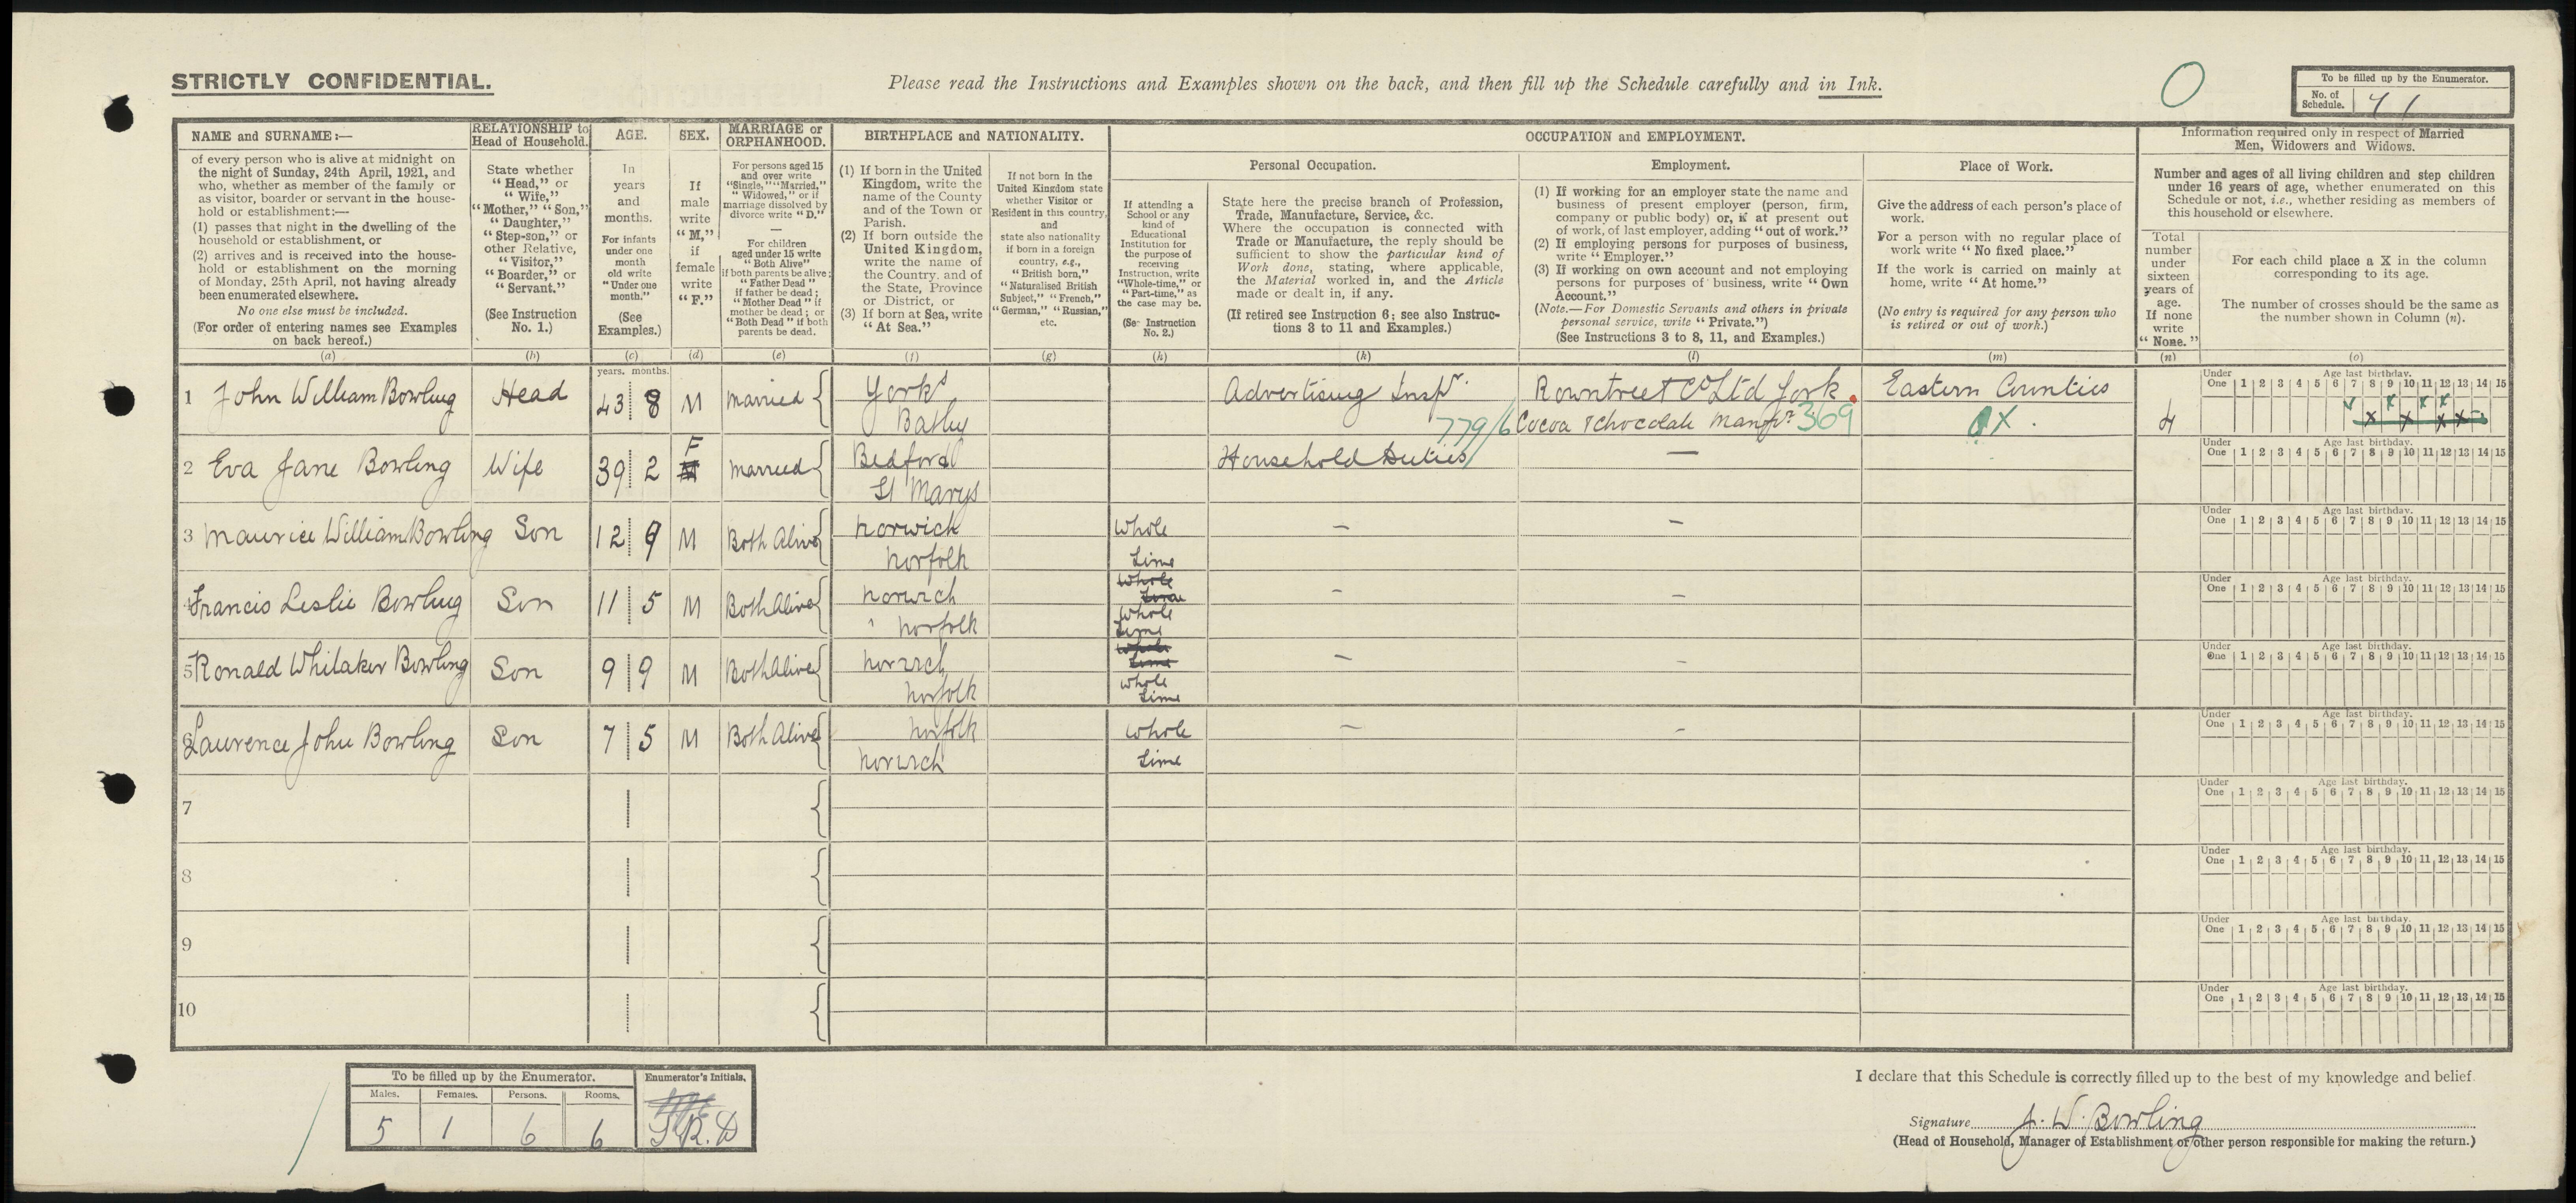 STRICTLY CONFIDENTIAL.
Please read the Instructions and Examples shown on the back, and then fill up the Schedule carefully and in Ink.
O
To be filled up by the Enumerator.
No. of Schedule. 71
NAME and SURNAME:—
of every person who is alive at midnight on
the night of Sunday, 24th April, 1921, and
who, whether as member of the family or
as visitor, boarder or servant in the house-
hold or establishment:—
(1) passes that night in the dwelling of the
household or establishment, or
(2) arrives and is received into the house-
hold or establishment on the morning
of Monday, 25th April, not having already
been enumerated elsewhere.
No one else must be included.
(For order of entering names see Examples
on back hereof.)
(a)
RELATIONSHIP to
Head of Household.
State whether
"Head," or
"Wife,"
"Mother," "Son,"
"Daughter,"
"Step-son," or
other Relative,
"Visitor,"
"Boarder," or
"Servant."
(See Instruction
No. 1.)
(b)
AGE.
In
years
and
months.
For infants
under one
month
old write
"Under one
month."
(See
Examples.)
(c)
SEX.
If
male
write
"M,"
if
female
write
"F."
(d)
MARRIAGE or
ORPHANHOOD.
For persons aged 15
and over write
"Single," "Married,"
"Widowed," or if
marriage dissolved by
divorce write "D."
—
For children
aged under 15 write
"Both Alive"
if both parents be alive;
"Father Dead"
if father be dead;
"Mother Dead" if
mother be dead; or
"Both Dead" if both
parents be dead.
(e)
BIRTHPLACE and NATIONALITY.
(1) If born in the United
Kingdom, write the
name of the County
and of the Town or
Parish.
(2) If born outside the
United Kingdom,
write the name of
the Country, and of
the State, Province
or District, or
(3) If born at Sea, write
"At Sea."
(f)
If not born in the
United Kingdom state
whether Visitor or
Resident in this country,
and
state also nationality
if born in a foreign
country, e.g.,
"British born,"
"Naturalised British
Subject," "French,"
"German," "Russian,"
etc.
(g)
OCCUPATION and EMPLOYMENT.
If attending a
School or any
kind of
Educational
Institution for
the purpose of
receiving
Instruction, write
"Whole-time," or
"Part-time," as
the case may be.
(See Instruction
No. 2.)
(h)
Personal Occupation.
State here the precise branch of Profession,
Trade, Manufacture, Service, &c.
Where the occupation is connected with
Trade or Manufacture, the reply should be
sufficient to show the particular kind of
Work done, stating, where applicable,
the Material worked in, and the Article
made or dealt in, if any.
(If retired see Instruction 6; see also Instruc-
tions 3 to 11 and Examples.)
(k)
Employment.
(1) If working for an employer state the name and
business of present employer (person, firm,
company or public body) or, if at present out
of work, of last employer, adding "out of work."
(2) If employing persons for purposes of business,
write "Employer."
(3) If working on own account and not employing
persons for purposes of business, write "Own
Account."
(Note.—For Domestic Servants and others in private
personal service, write "Private.")
(See Instructions 3 to 8, 11, and Examples.)
(l)
Place of Work.
Give the address of each person's place of
work.
For a person with no regular place of
work write "No fixed place."
If the work is carried on mainly at
home, write "At home."
(No entry is required for any person who
is retired or out of work.)
(m)
Information required only in respect of Married
Men, Widowers and Widows.
Number and ages of all living children and step children
under 16 years of age, whether enumerated on this
Schedule or not, i.e., whether residing as members of
this household or elsewhere.
Total
number
under
sixteen
years of
age.
If none
write
"None."
(n)
For each child place a X in the column
corresponding to its age.
The number of crosses should be the same as
the number shown in Column (n).
(o)
years. months.
1 John William Bowling Head 43 8 M Married Yorks Batley Advertising Inspr. Rowntree & Co Ltd York. Eastern Counties 4
779/6 Cocoa & Chocolate Manfr. 369 X
Under One Age last birthday. 1 2 3 4 5 6 7 8 9 10 11 12 13 14 15
X X X
X X X X
2 Eva Jane Bowling Wife 39 2 M F Married Bedford St Marys Household Duties —
Under One Age last birthday. 1 2 3 4 5 6 7 8 9 10 11 12 13 14 15
3 Maurice William Bowling Son 12 9 M Both Alive Norwich Norfolk Whole Time — —
Under One Age last birthday. 1 2 3 4 5 6 7 8 9 10 11 12 13 14 15
4 Francis Leslie Bowling Son 11 5 M Both Alive Norwich Norfolk Whole Time Whole Time — —
Under One Age last birthday. 1 2 3 4 5 6 7 8 9 10 11 12 13 14 15
5 Ronald Whitaker Bowling Son 9 9 M Both Alive Norwich Norfolk Whole Time Whole Time — —
Under One Age last birthday. 1 2 3 4 5 6 7 8 9 10 11 12 13 14 15
6 Laurence John Bowling Son 7 5 M Both Alive Norfolk Norwich Whole Time — —
Under One Age last birthday. 1 2 3 4 5 6 7 8 9 10 11 12 13 14 15
7
Under One Age last birthday. 1 2 3 4 5 6 7 8 9 10 11 12 13 14 15
8
Under One Age last birthday. 1 2 3 4 5 6 7 8 9 10 11 12 13 14 15
9
Under One Age last birthday. 1 2 3 4 5 6 7 8 9 10 11 12 13 14 15
10
Under One Age last birthday. 1 2 3 4 5 6 7 8 9 10 11 12 13 14 15
To be filled up by the Enumerator.
Males. Females. Persons. Rooms.
5 1 6 6
Enumerator's Initials.
R. D
I declare that this Schedule is correctly filled up to the best of my knowledge and belief.
Signature J. W. Bowling
(Head of Household, Manager of Establishment or other person responsible for making the return.)